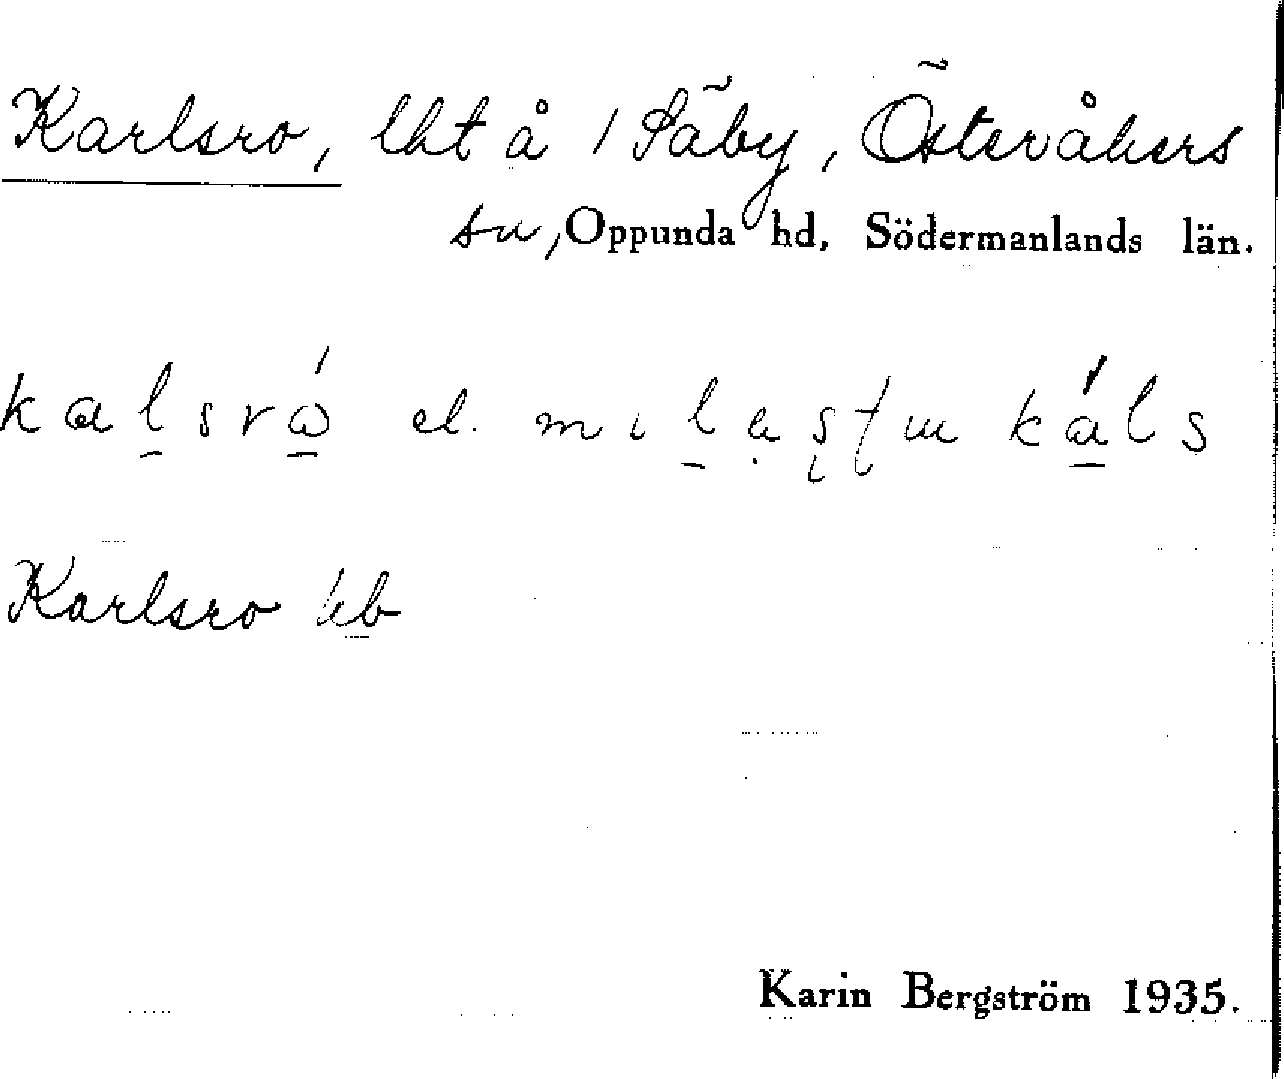 Karlsro, lht å 1 Säby, Österåkers
sn, Oppunda hd, Södermanlands län.
kalsró el. káls
Karlsro kb
Karin Bergström 1935.